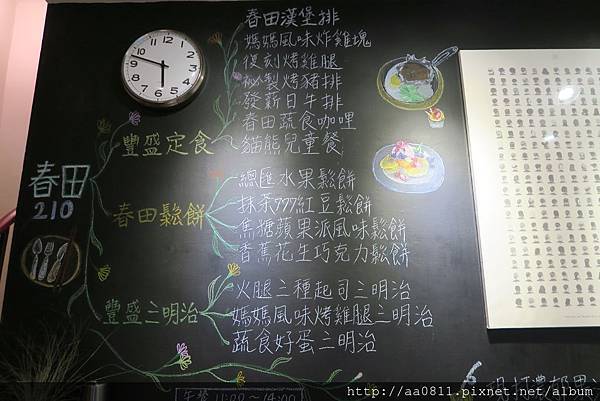 春田漢堡排
媽媽風味炸雞塊
復刻烤雞腿
秘製烤豬排
發薪日牛排
春田蔬食咖哩
貓熊兒童餐
豐盛定食
春田
210
總匯水果鬆餅
抹茶999紅豆鬆餅
焦糖蘋果派風味鬆餅
香蕉花生巧克力鬆餅
春田鬆餅
火腿三種起司三明治
媽媽風味烤雞腿三明治
蔬食好蛋三明治
豐盛三明治
午餐 11:00~14:00
http://aa0811.pixnet.net/album